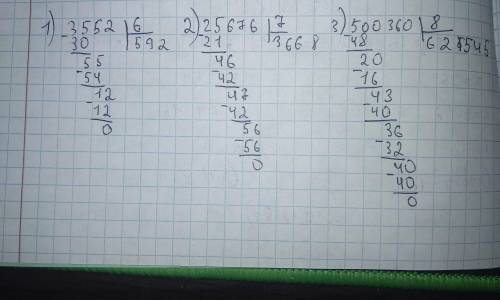 1) 3552 | 6 2) 25676 | 7 3) 500360 | 8
-30 592 -21 3668 -48 627545
55 46 20
-54 -42 -16
12 47 43
-12 -42 -40
0 56 36
-56 -32
0 40
-40
0